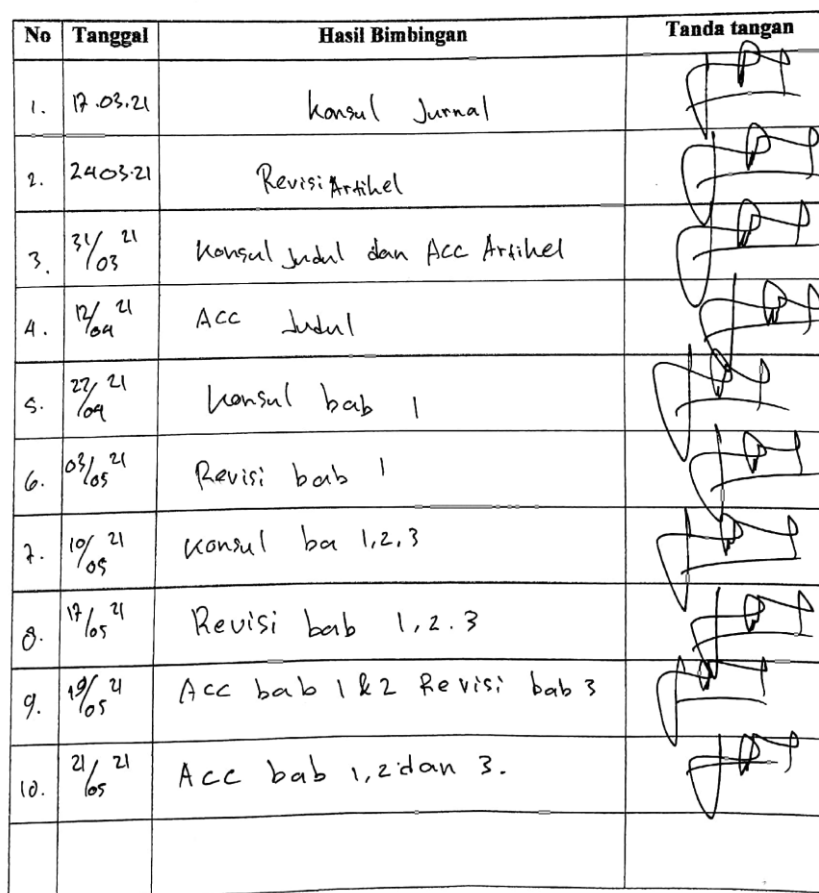 No Tanggal Hasil Bimbingan Tanda tangan
1. 17.03.21 Konsul Jurnal
2. 24.03.21 Revisi Artikel
3. 31/03 21 Konsul Judul dan Acc Artikel
4. 12/04 21 ACC Judul
5. 27/04 21 Konsul bab 1
6. 03/05 21 Revisi bab 1
7. 10/05 21 Konsul ba 1,2,3
8. 17/05 21 Revisi bab 1,2.3
9. 19/05 21 Acc bab 1 & 2 Revisi bab 3
10. 21/05 21 Acc bab 1,2 dan 3.